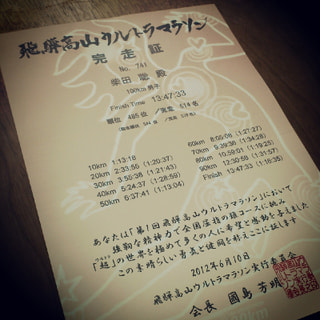 飛騨高山ウルトラマラソン
完走証
No. 741
柴田 聡 殿
100km 男子
Finish Time 13:47:33
順位 485位 / 完走 514名
10km 1:13:18
20km 2:33:55 (1:20:37)
30km 3:55:38 (1:21:43)
40km 5:24:37 (1:28:59)
50km 6:37:41 (1:13:04)
60km 8:05:08 (1:27:27)
70km
80km 10:59:01
90km 12:30:58
Finish 13:47:33 (1:16:35)
あなたは「第1回飛騨高山ウルトラマラソン」において
強靭な精神力で全国屈指の難コースに挑み
「超」の世界を極めて多くの人に希望と感動を与えました
この素晴らしい勇気と健闘を称えここに証します
2012年6月10日
飛騨高山ウルトラマラソン実行委員会
会長 國島 芳明